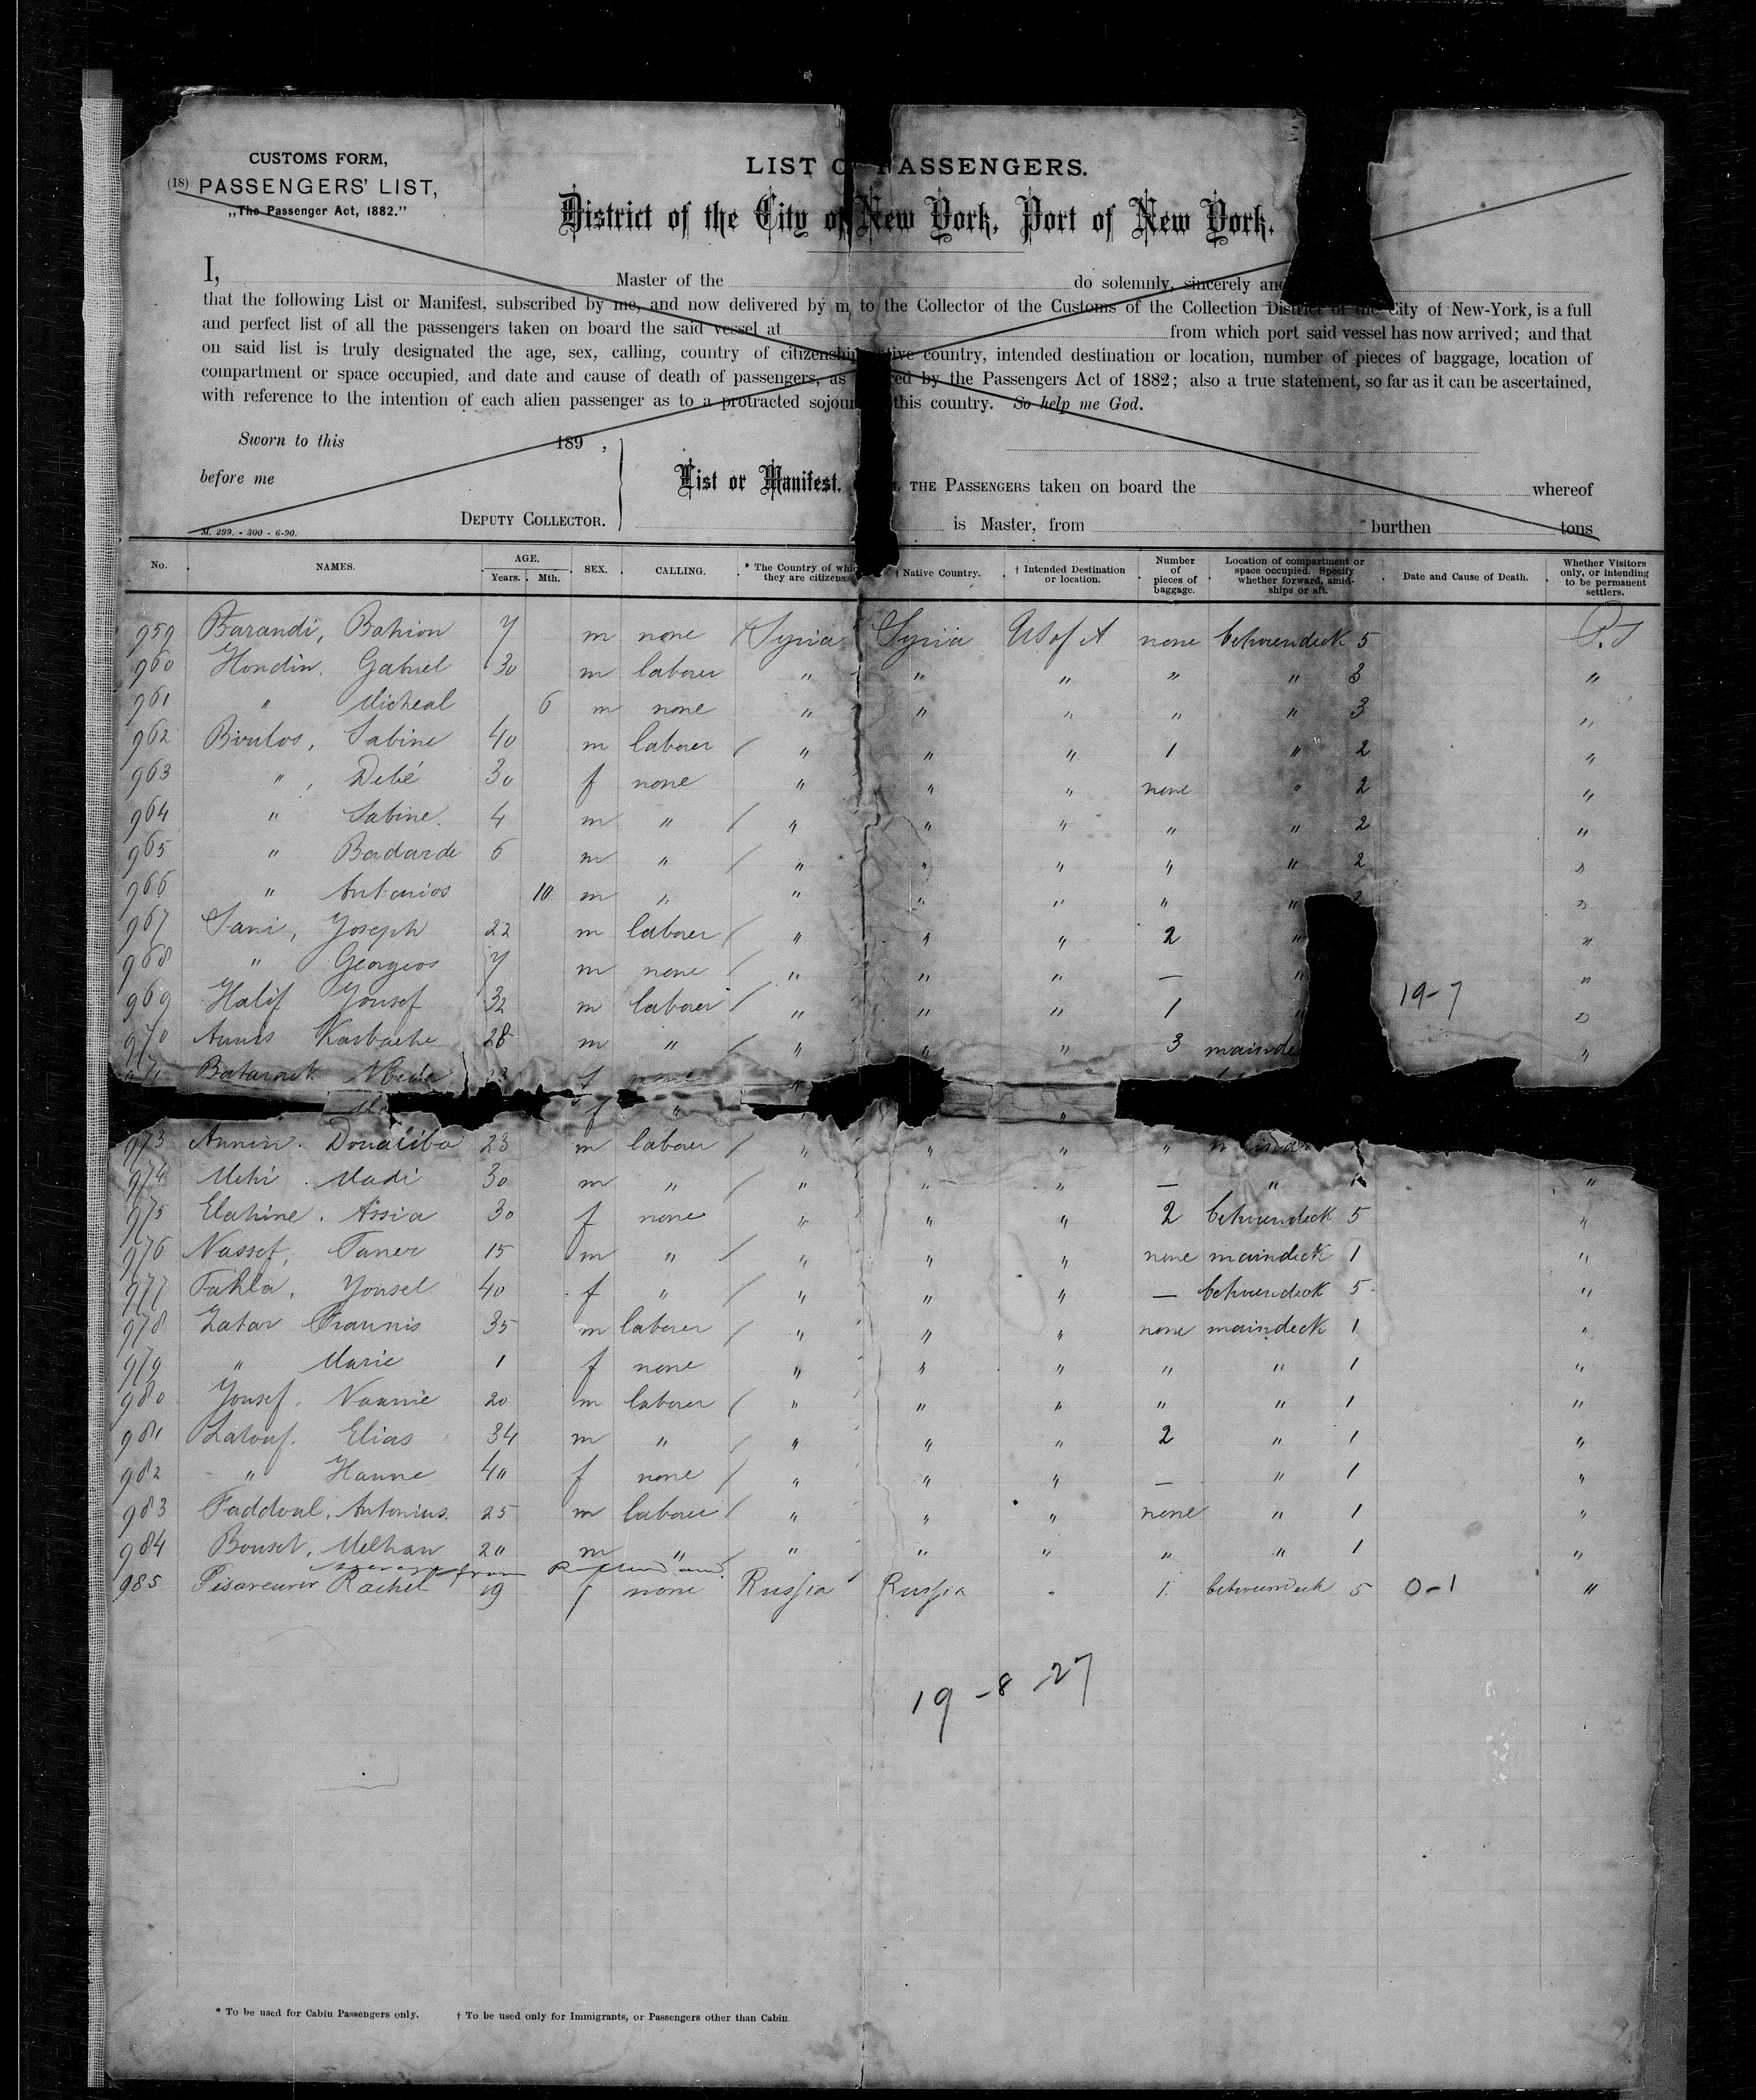 CUSTOMS FORM,
(18) PASSENGERS' LIST,
„The Passenger Act, 1882."
LIST O PASSENGERS.
District of the City of New York, Port of New York.
I, Master of the do solemnly, sincerely and
that the following List or Manifest, subscribed by me, and now delivered by m to the Collector of the Customs of the Collection District of the City of New-York, is a full
and perfect list of all the passengers taken on board the said vessel at from which port said vessel has now arrived; and that
on said list is truly designated the age, sex, calling, country of citizenship tive country, intended destination or location, number of pieces of baggage, location of
compartment or space occupied, and date and cause of death of passengers, as red by the Passengers Act of 1882; also a true statement, so far as it can be ascertained,
with reference to the intention of each alien passenger as to a protracted sojour this country. So help me God.
Sworn to this 189 ,
before me
List or Manifest, THE PASSENGERS taken on board the whereof
DEPUTY COLLECTOR. is Master, from burthen tons
M. 299. - 300 - 6-90.
No. NAMES. AGE. Years. Mth. SEX. CALLING. * The Country of whi they are citizens † Native Country. † Intended Destination or location. Number of pieces of baggage. Location of compartment or space occupied. Specify whether forward, amidships or aft. Date and Cause of Death. Whether Visitors only, or intending to be permanent settlers.
959 Barandi, Bahion 7 m none Syria Syria US of A none betweendeck 5 P.S
960 Hondin, Gabriel 30 m laborer " " " " " 3 "
961 " Micheal 6 m none " " " " " 3 "
962 Boulos, Sabine 40 m laborer / " " " 1 " 2 "
963 " , Debé 30 f none " " " none " 2 "
964 " Sabine. 4 m " / " " " " " 2 "
965 " Badarde 6 m " / " " " " " 2 "
966 " Antonios 10 m " " " " " " 2 "
967 Sani, Joseph 22 m laborer / " " " 2 " "
968 " Georgeos 7 m none / " " " — " "
969 Halif Yousef 32 m laborer / " " " 1 19-7 "
970 Annis Karbache 28 m " / " " " 3 mainde "
971 Batarack f none "
f " "
973 Annin. Douaiiba 23 m laborer / " " " "
974 Mehi. Madi 30 m " / " " " — " 1 "
975 Elahine. Assia 30 f none " " " 2 betweendeck 5 "
976 Nassef, Taner 15 m " / " " " none maindeck 1 "
977 Fahla, Yousel 40 f " / " " " — betweendeck 5 "
978 Zatar Frannis 35 m laborer / " " " none maindeck 1 "
979 " Marie 1 f none " " " " " 1 "
980 Yousef, Naamie 20 m laborer / " " " " " 1 "
981 Latouf. Elias 34 m " / " " " 2 " 1 "
982 " Hanne 40 f none / " " " — " 1 "
983 Faddoal, Antonius. 25 m laborer / " " " none " 1 "
984 Bouset, Melhan 20 m " / " " " " " 1 "
from
985 Rachel 19 f none Russia Russia " 1. betweendeck 5 0-1 "
19 - 8 27
* To be used for Cabin Passengers only. † To be used only for Immigrants, or Passengers other than Cabin.